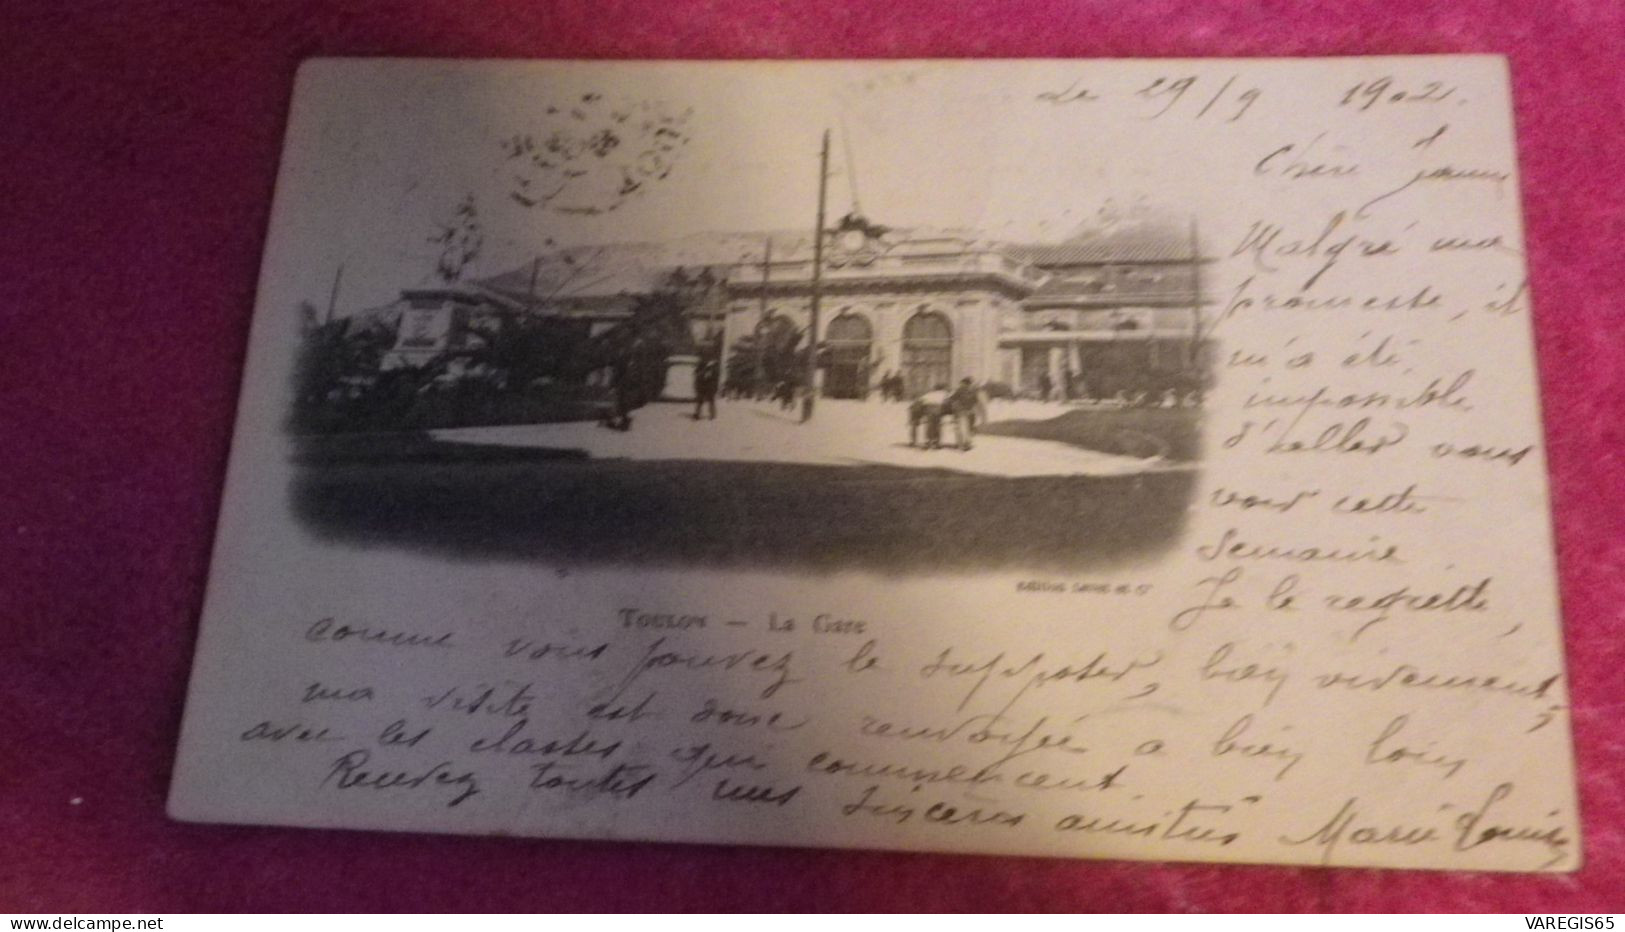 Le 29/9 1902.
Chère Jeanne
Malgré ma
promesse, il
m'a été
impossible
d'aller vous
voir cette
Semaine.
Je le regrette,
comme vous pouvez le supposer, bien vivement,
ma visite est donc renvoyée à bien loin
avec les classes qui commencent.
Recevez toutes mes sincères amitiés Marie Louise
TOULON — La Gare
delcampe.net
VAREGIS65